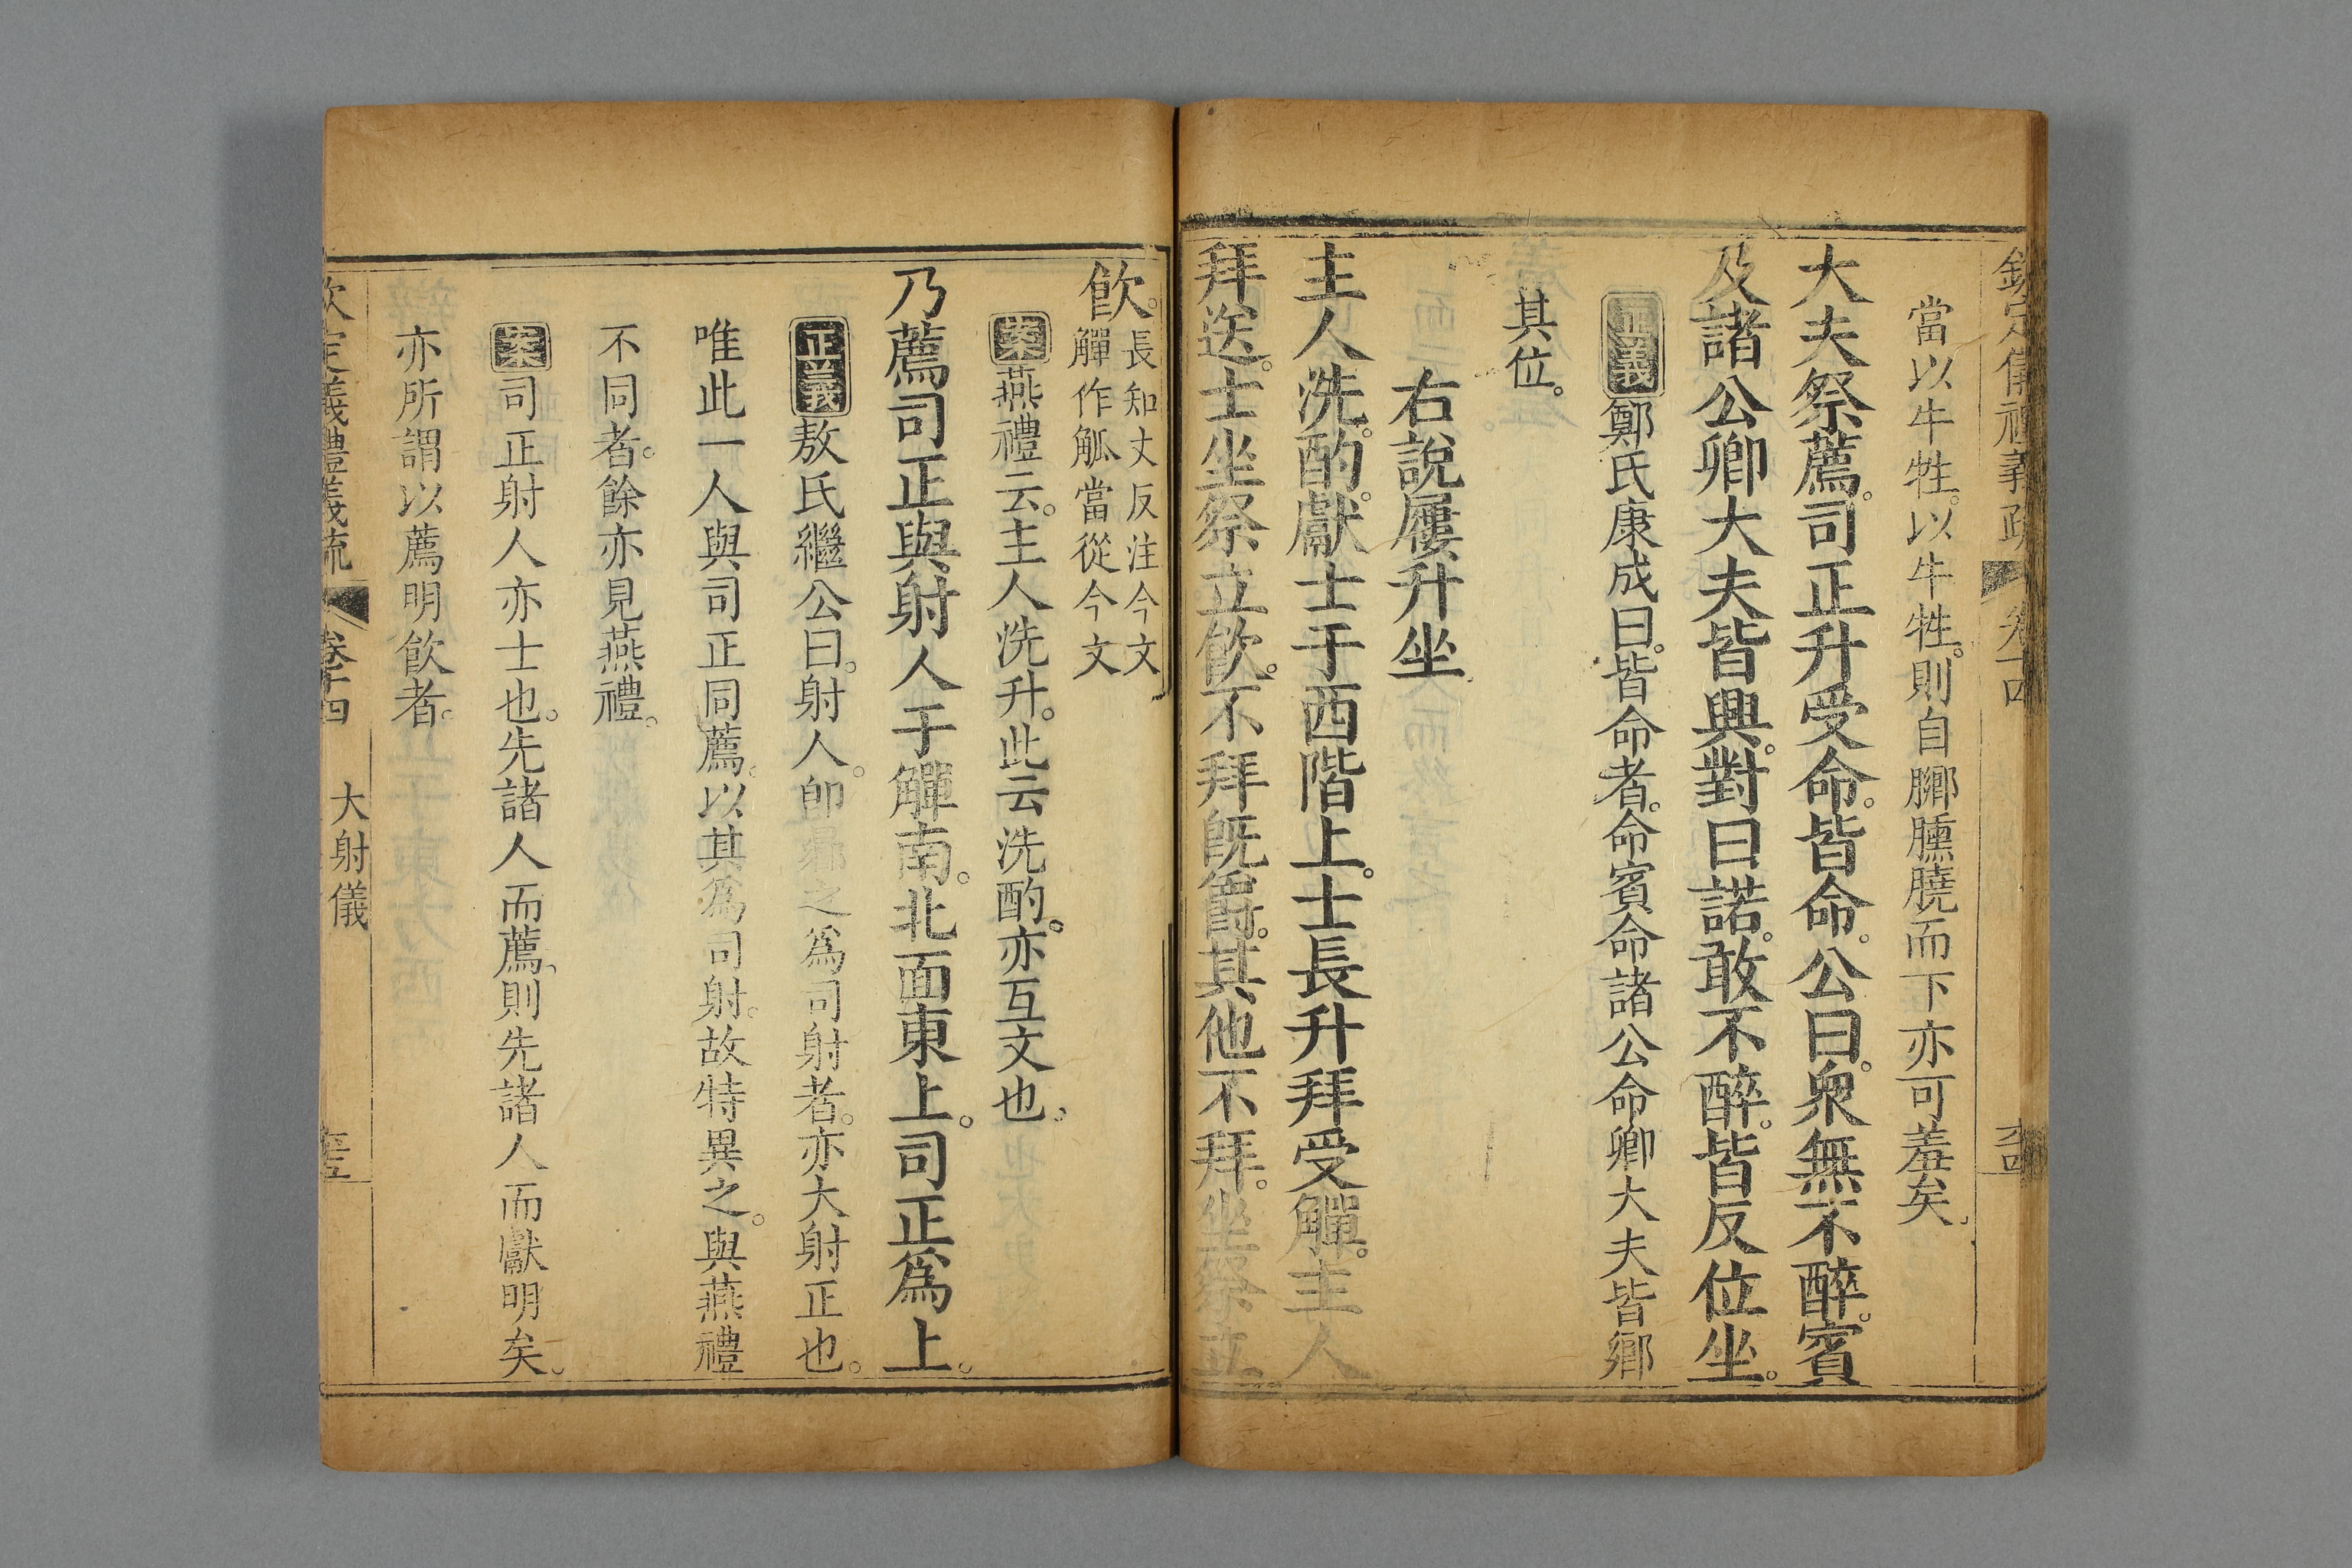 欽定儀禮義疏 卷十四
當以牛牲。以牛牲。則自膷臐膮而下亦可羞矣。
大夫祭薦。司正升受命。皆命。公曰。衆無不醉。賓
及諸公卿大夫皆興。對曰諾。敢不醉。皆反位坐。
正義鄭氏康成曰。皆命者。命賓命諸公命卿大夫皆鄉
其位。
右說屨升坐
主人洗。酌。獻士于西階上。士長升拜受觶。主人
拜送。士坐祭立飲。不拜旣爵。其他不拜。坐祭立
飲。長知丈反注今文
觶作觚當從今文
案燕禮云。主人洗升。此云洗酌。亦互文也。
乃薦司正與射人于觶南。北面東上。司正爲上。
正義敖氏繼公曰。射人。卽曏之爲司射者。亦大射正也。
唯此一人與司正同薦。以其爲司射。故特異之。與燕禮
不同者。餘亦見燕禮。
案司正射人亦士也。先諸人而薦。則先諸人而獻明矣。
亦所謂以薦明飲者。
欽定儀禮義疏 卷十四 大射儀